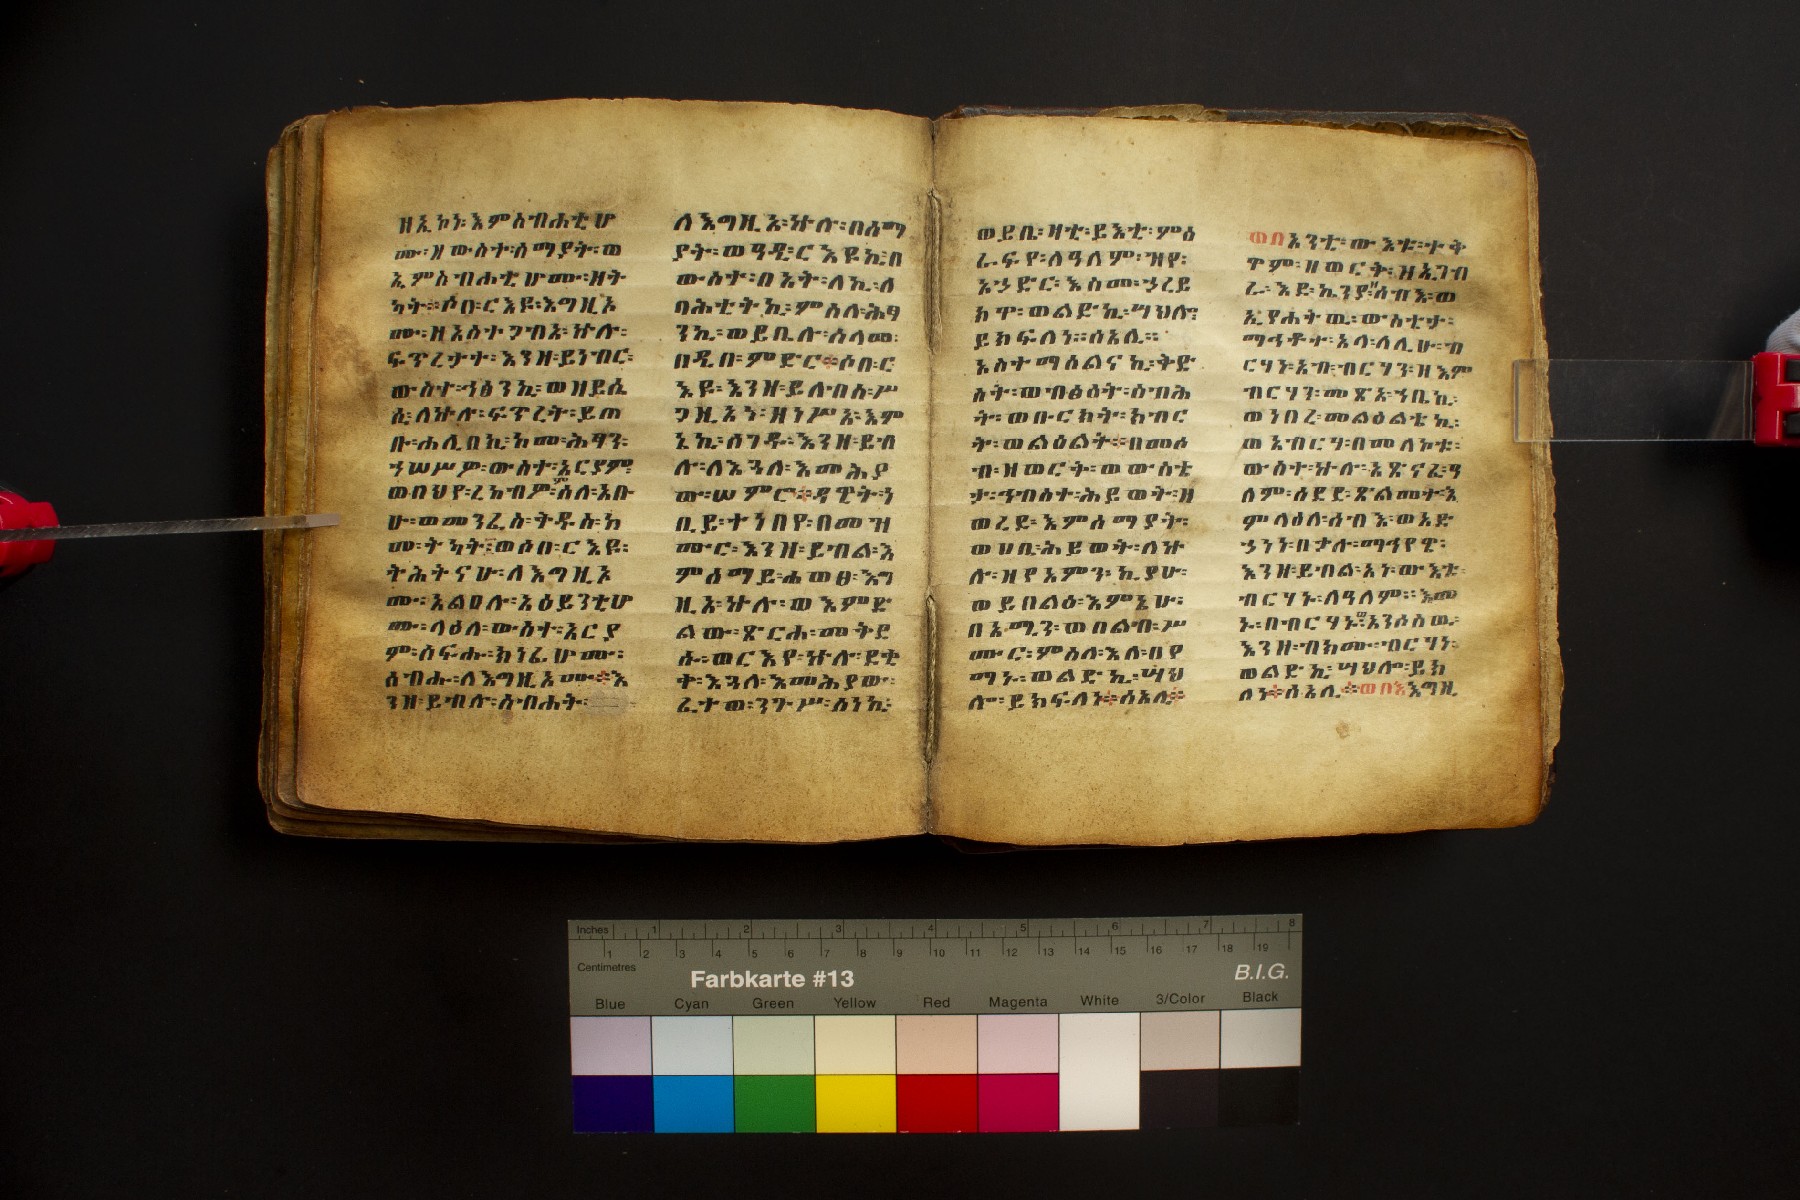 ዘኢኮነ፡ እምስብሐቲሆ
ሙ፡ ዘውስተ፡ ሰማያት፡ ወ
ኢምስብሐቲሆሙ፡ ዘት
ካት። ሶበ፡ ርእዩ፡ እግዚኦ
ሙ፡ ዘአስተጋብአ፡ ኵሉ፡
ፍጥረታተ፡ እንዘ፡ ይነብር፡
ውስተ፡ ኅፅንኪ፡ ወዘይሴ
ሲ፡ ለኵሉ፡ ፍጥረት፡ ይጠ
ቡ፡ ሐሊበኪ፡ ከመ፡ ሕፃን፡
ኀሠሥዎ፡ ውስተ፡ አርያም፡
ወበህየ፡ ረከብዎ፡ ምስለ፡ አቡ
ሁ፡ ወመንፈስ፡ ቅዱስ፡ ከ
መ፡ ትካት። ወሶበ፡ ርእዩ፡
ትሕትናሁ፡ ለእግዚኦ
ሙ፡ አልዐሉ፡ አዕይንቲሆ
ሙ፡ ላዕለ፡ ውስተ፡ አርያ
ም፡ ሰፍሑ፡ ክነፊሆሙ፡
ሰብሑ፡ ለእግዚኦሙ። እ
ንዘ፡ ይብሉ፡ ስብሐት፡
ለእግዚአ፡ ኵሉ፡ በሰማ
ያት፡ ወዓዲ፡ ርእዩኪ፡ በ
ውስተ፡ በአት፡ ለኪ፡ ለ
ባሕቲትኪ፡ ምስለ፡ ሕፃ
ንኪ፡ ወይቤሉ፡ ሰላመ፡
በዲበ፡ ምድር። ሶበ፡ ር
እዩ፡ እንዘ፡ ይለብስ፡ ሥ
ጋ ዚአነ፡ ዘነሥአ፡ እም
ኔኪ፡ ሰገዱ፡ እንዘ፡ ይብ
ሉ፡ ለእጓለ፡ እመሕያ
ው፡ ሠምሮ። ዳዊት፡ ነ
ቢይ፡ ተነበየ፡ በመዝ
ሙር፡ እንዘ፡ ይብል፡ እ
ምሰማይ፡ ሐወፀ፡ እግ
ዚአ፡ ኵሉ፡ ወእምድ
ልው፡ ጽርሐ፡ መቅደ
ሱ፡ ወርእየ፡ ኵሎ፡ ደቂ
ቀ፡ እጓለ፡ እመሕያው፡
ፈተወ፡ ንጉሥ፡ ስነኪ፡
ወይቤ፡ ዛቲ፡ ይእቲ፡ ምዕ
ራፍየ፡ ለዓለም፡ ዝየ፡
አኃድር፡ እስመ፡ ኃረይ
ክዋ፡ ወልድኪ፡ ሣህሎ፡
ይክፍለነ። ሰአሊ።
አስተማሰልናኪ፡ ቅድ
ስት፡ ወብፅዕት፡ ስብሕ
ት፡ ወቡርክት፡ ክብር
ት፡ ወልዕልት። በመሶ
ብ፡ ዘወርቅ፡ ወውስቴ
ታ፡ ኅብስተ፡ ሕይወት፡ ዘ
ወረደ፡ እምሰማያት፡
ወሀቤ፡ ሕይወት፡ ለኵ
ሉ፡ ዘየአምን፡ ኪያሁ፡
ወይበልዕ፡ እምኔሁ፡
በአሚን፡ ወበልብ፡ ሥ
ሙር፡ ምስለ፡ እለ፡ በየ
ማኑ፡ ወልድኪ፡ ሣህ
ሎ፡ ይክፍለነ። ሰአሊ።
ወበአንቲ፡ ውእቱ፡ ተቅ
ዋም፡ ዘወርቅ፡ ዘኢገብ
ራ፡ እደ፡ ኬንያ፡ ሰብእ፡ ወ
ኢየሐትዉ፡ ውስቴታ፡
ማኅቶተ፡ አላ፡ ለሊሁ፡ ብ
ርሃነ፡ አብ፡ ብርሃን፡ ዘእም
ብርሃን፡ መጽአ፡ ኀቤኪ፡
ወነበረ፡ መልዕልቴኪ፡
ወአብርሃ፡ በመለኮቱ፡
ውስተ፡ ኵሉ፡ አጽናፈ፡ ዓ
ለም፡ ሰደደ፡ ጽልመተ፡ እ
ምላዕለ፡ ሰብእ፡ ወአድ
ኃነነ፡ በቃሉ፡ ማኅየዊ፡
እንዘ፡ ይብል፡ አነ፡ ውእቱ፡
ብርሃኑ፡ ለዓለም። እመ
ኑ፡ በብርሃኑ፡ ወአንሶስዉ፡
እንዘ፡ ብክሙ፡ ብርሃነ፡
ወልድኪ፡ ሣህሎ፡ ይክ
ለነ። ሰአሊ። ወበእግዚ
Inches 1 2 3 4 5 6 7 8
1 2 3 4 5 6 7 8 9 10 11 12 13 14 15 16 17 18 19
Centimetres
Farbkarte #13 B.I.G.
Blue Cyan Green Yellow Red Magenta White 3/Color Black